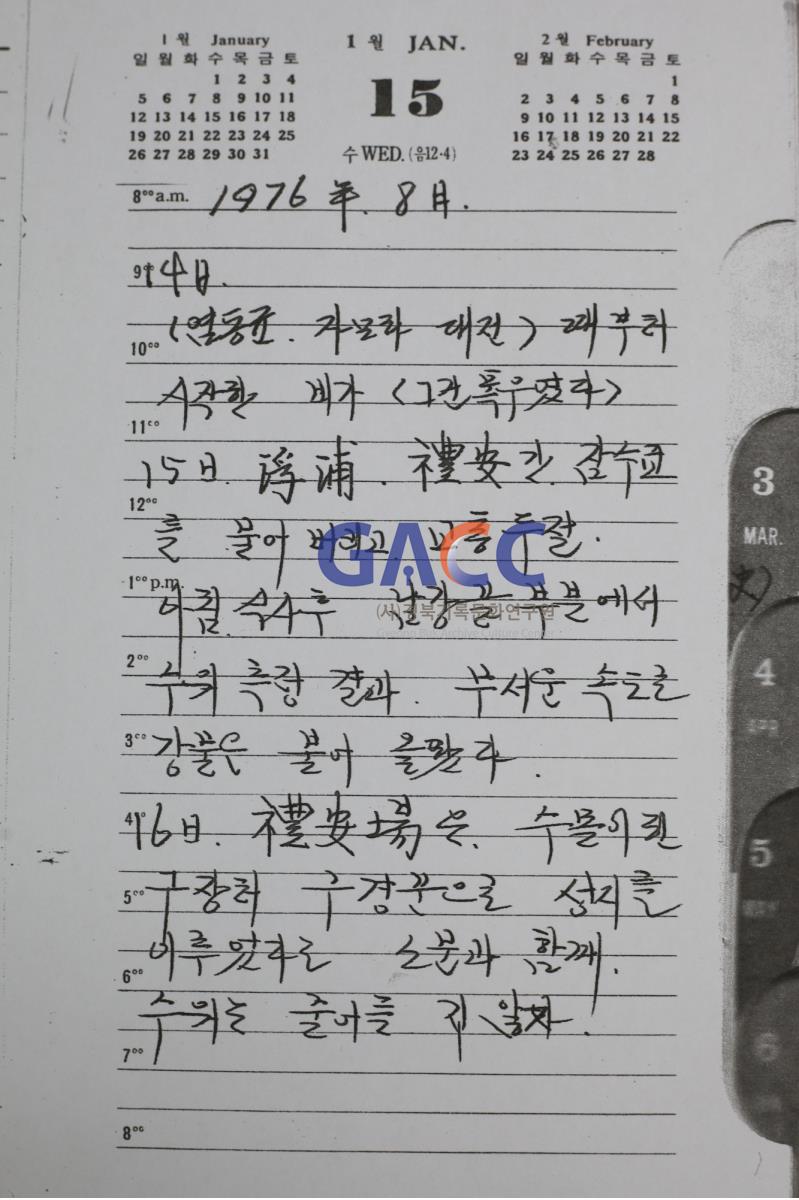 1월 January
일 월 화 수 목 금 토
1 2 3 4
5 6 7 8 9 10 11
12 13 14 15 16 17 18
19 20 21 22 23 24 25
26 27 28 29 30 31
1월 JAN.
15
수 WED. (음12·4)
2월 February
일 월 화 수 목 금 토
1
2 3 4 5 6 7 8
9 10 11 12 13 14 15
16 17 18 19 20 21 22
23 24 25 26 27 28
8⁰⁰a.m. 1976 年. 8 月.
9⁰⁰ 14日.
10⁰⁰ 대전) 때부터
시작한 비가 (그간 폭우였다)
11⁰⁰
15日. 浮浦. 禮安간. 잠수교
12⁰⁰
를 물어 버리고 교통두절.
1⁰⁰p.m.
아침 식사후 낙강물 부분에서
2⁰⁰
수위 측량 결과. 무서운 속도로
3⁰⁰ 강물은 불어 올랐다.
4⁰⁰ 16日. 禮安場은. 수몰이 된
5⁰⁰ 구장터 구경꾼으로 성지를
이루었다는 소문과 함께.
6⁰⁰
수위는 줄어들 지 않자.
7⁰⁰
8⁰⁰
GACC
(사)경북기록문화연구원
3
MAR.
4
5
6